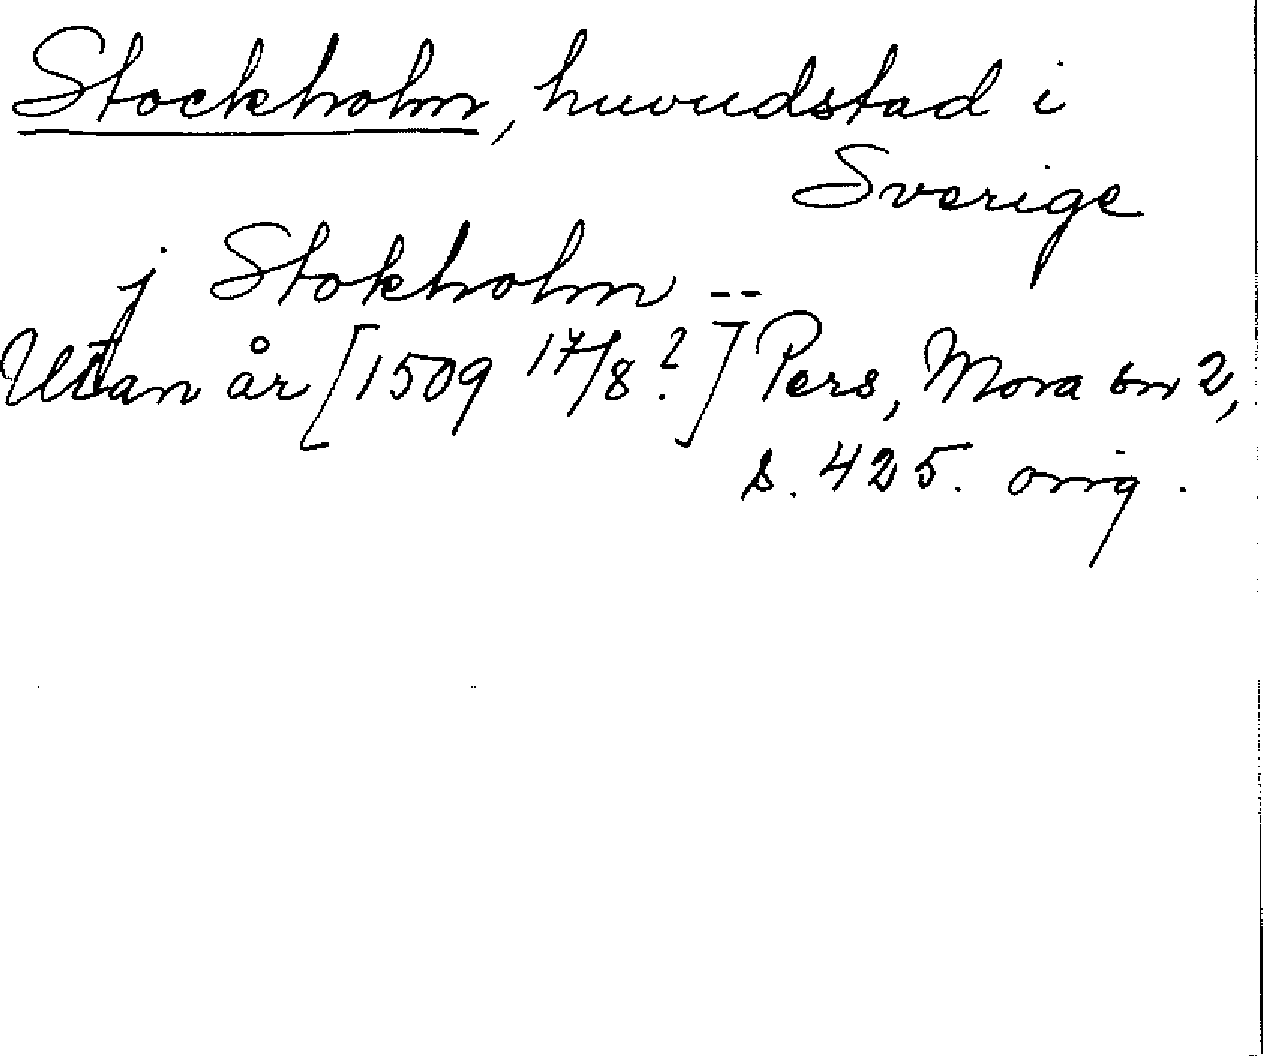 Stockholm, huvudstad i
Sverige
j Stokholm --
Utan år [1509 17/8?] Pers, Mora br 2,
s. 425. orig.